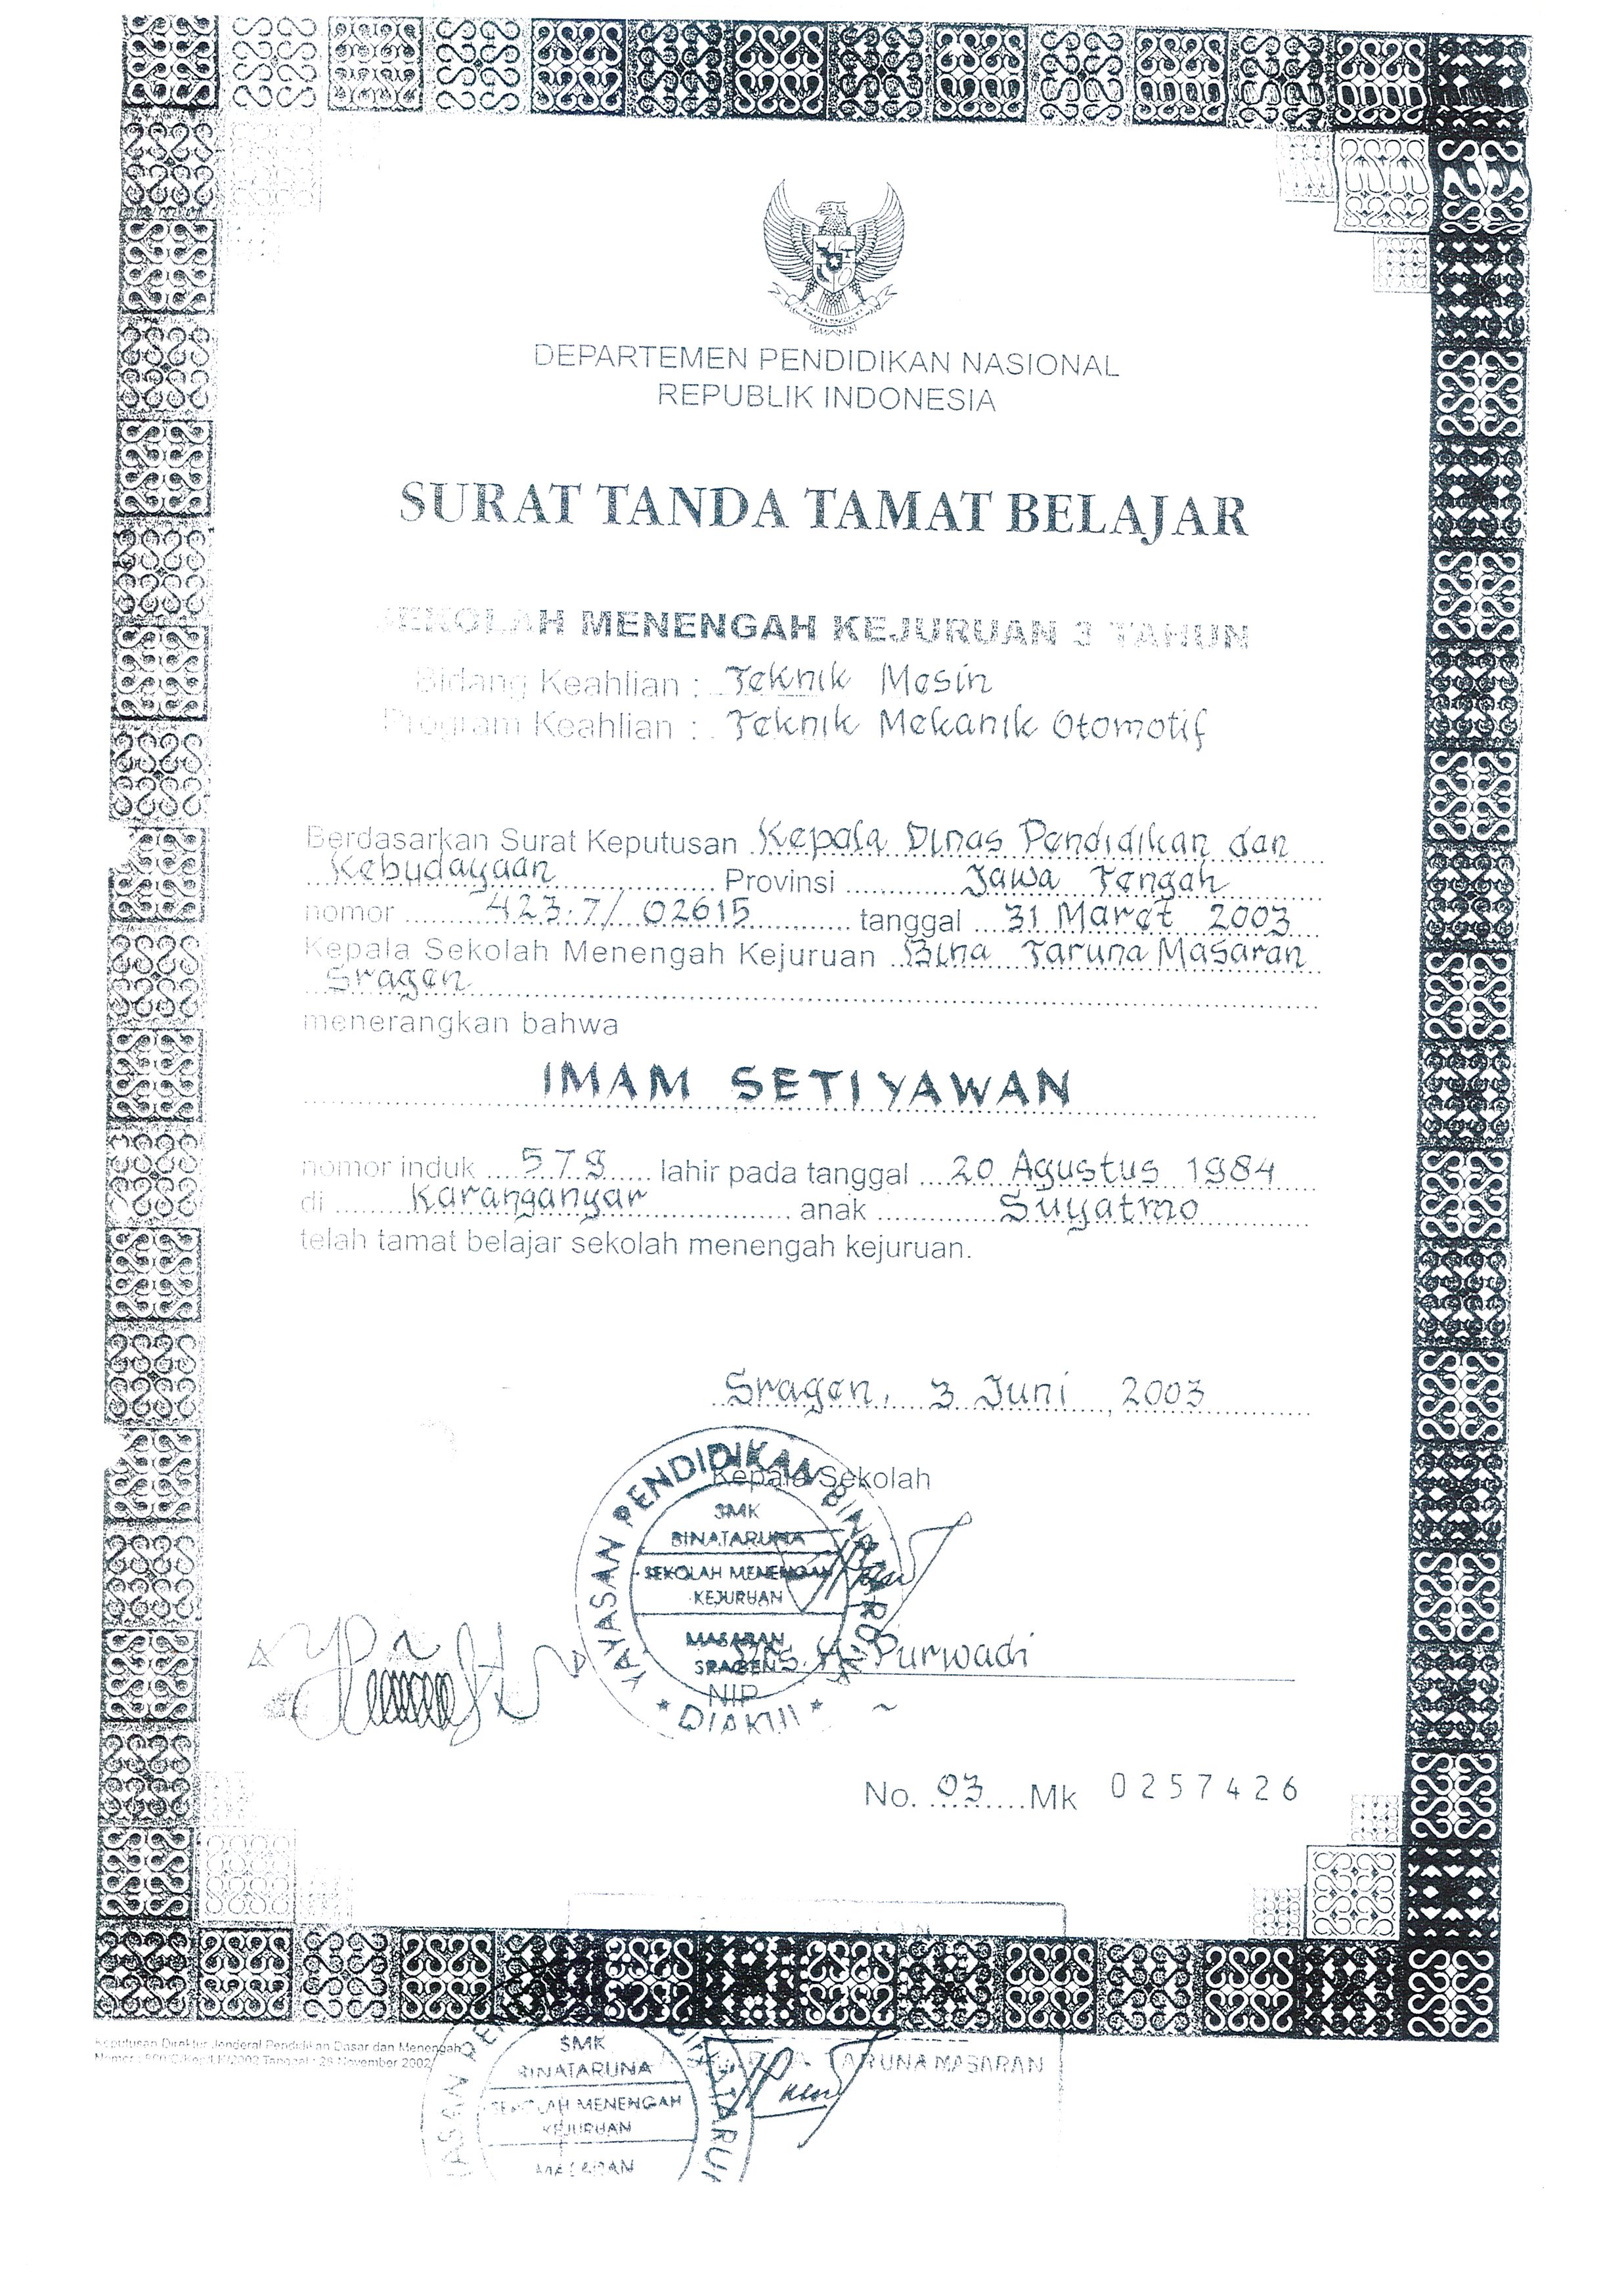 DEPARTEMEN PENDIDIKAN NASIONAL
REPUBLIK INDONESIA
SURAT TANDA TAMAT BELAJAR
SEKOLAH MENENGAH KEJURUAN 3 TAHUN
Bidang Keahlian : Teknik Mesin
Program Keahlian : Teknik Mekanik Otomotif
Berdasarkan Surat Keputusan Kepala Dinas Pendidikan dan
Kebudayaan Provinsi Jawa Tengah
nomor 423.7/ 02615 tanggal 31 Maret 2003
Kepala Sekolah Menengah Kejuruan Bina Taruna Masaran
Sragen
menerangkan bahwa
IMAM SETIYAWAN
nomor induk 579 lahir pada tanggal 20 Agustus 1984
di Karanganyar anak Suyatmo
telah tamat belajar sekolah menengah kejuruan.
Sragen, 3 Juni, 2003
Kepala Sekolah
YAYASAN PENDIDIKAN BINA TARUNA
SMK
BINATARUNA
SEKOLAH MENENGAH
KEJURUAN
MASARAN
SRAGEN
* DIAKUI *
Drs. A. Purwadi
NIP
No. 03 Mk 0257426
Keputusan Direktur Jenderal Pendidikan Dasar dan Menengah
Tanggal : 28 November 2002
SMK
BINATARUNA
SEKOLAH MENENGAH
KEJURUAN
MASARAN
TARUNA MASARAN